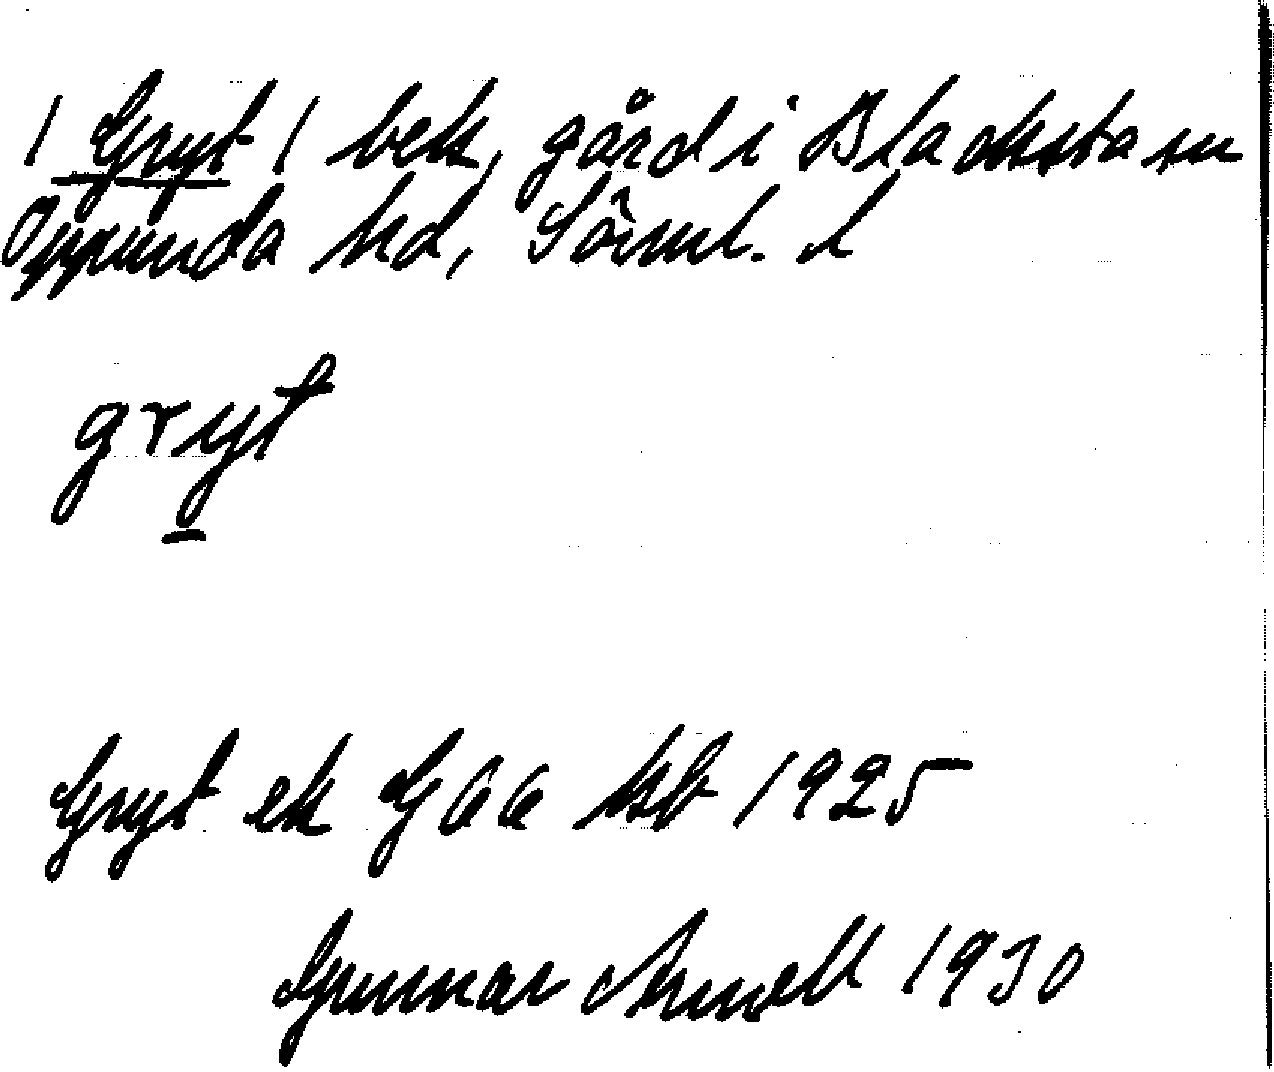 / Gryt / bek, gård i Blacksta sn
Oppunda hd, Sörml. l
gryt
Gryt ek G66 kb 1925
Gunnar Arnell 1930